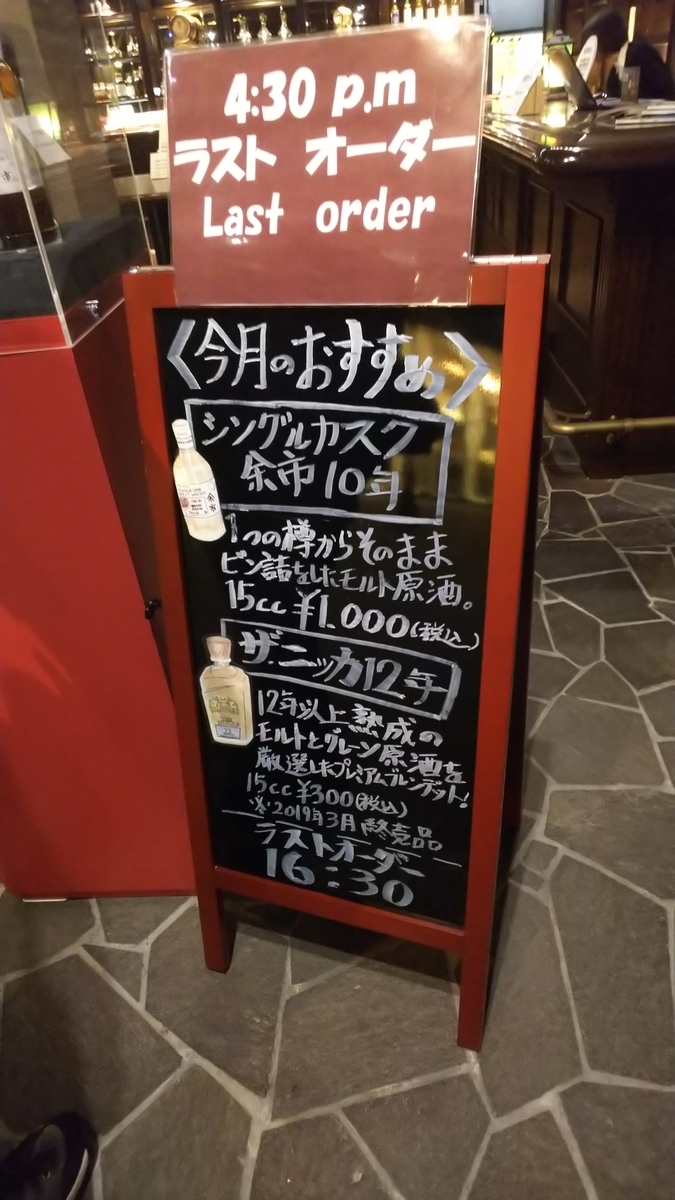 4:30 p.m
ラスト オーダー
Last order
〈今月のおすすめ〉
シングルカスク
余市10年
1つの樽からそのまま
ビン詰をしたモルト原酒。
15cc ¥1.000(税込)
ザ・ニッカ12年
12年以上熟成の
モルトとグレーン原酒を
厳選したプレミアムブレンデット!
15cc ¥300(税込)
※2019年3月終売品
ラストオーダー
16:30
余市